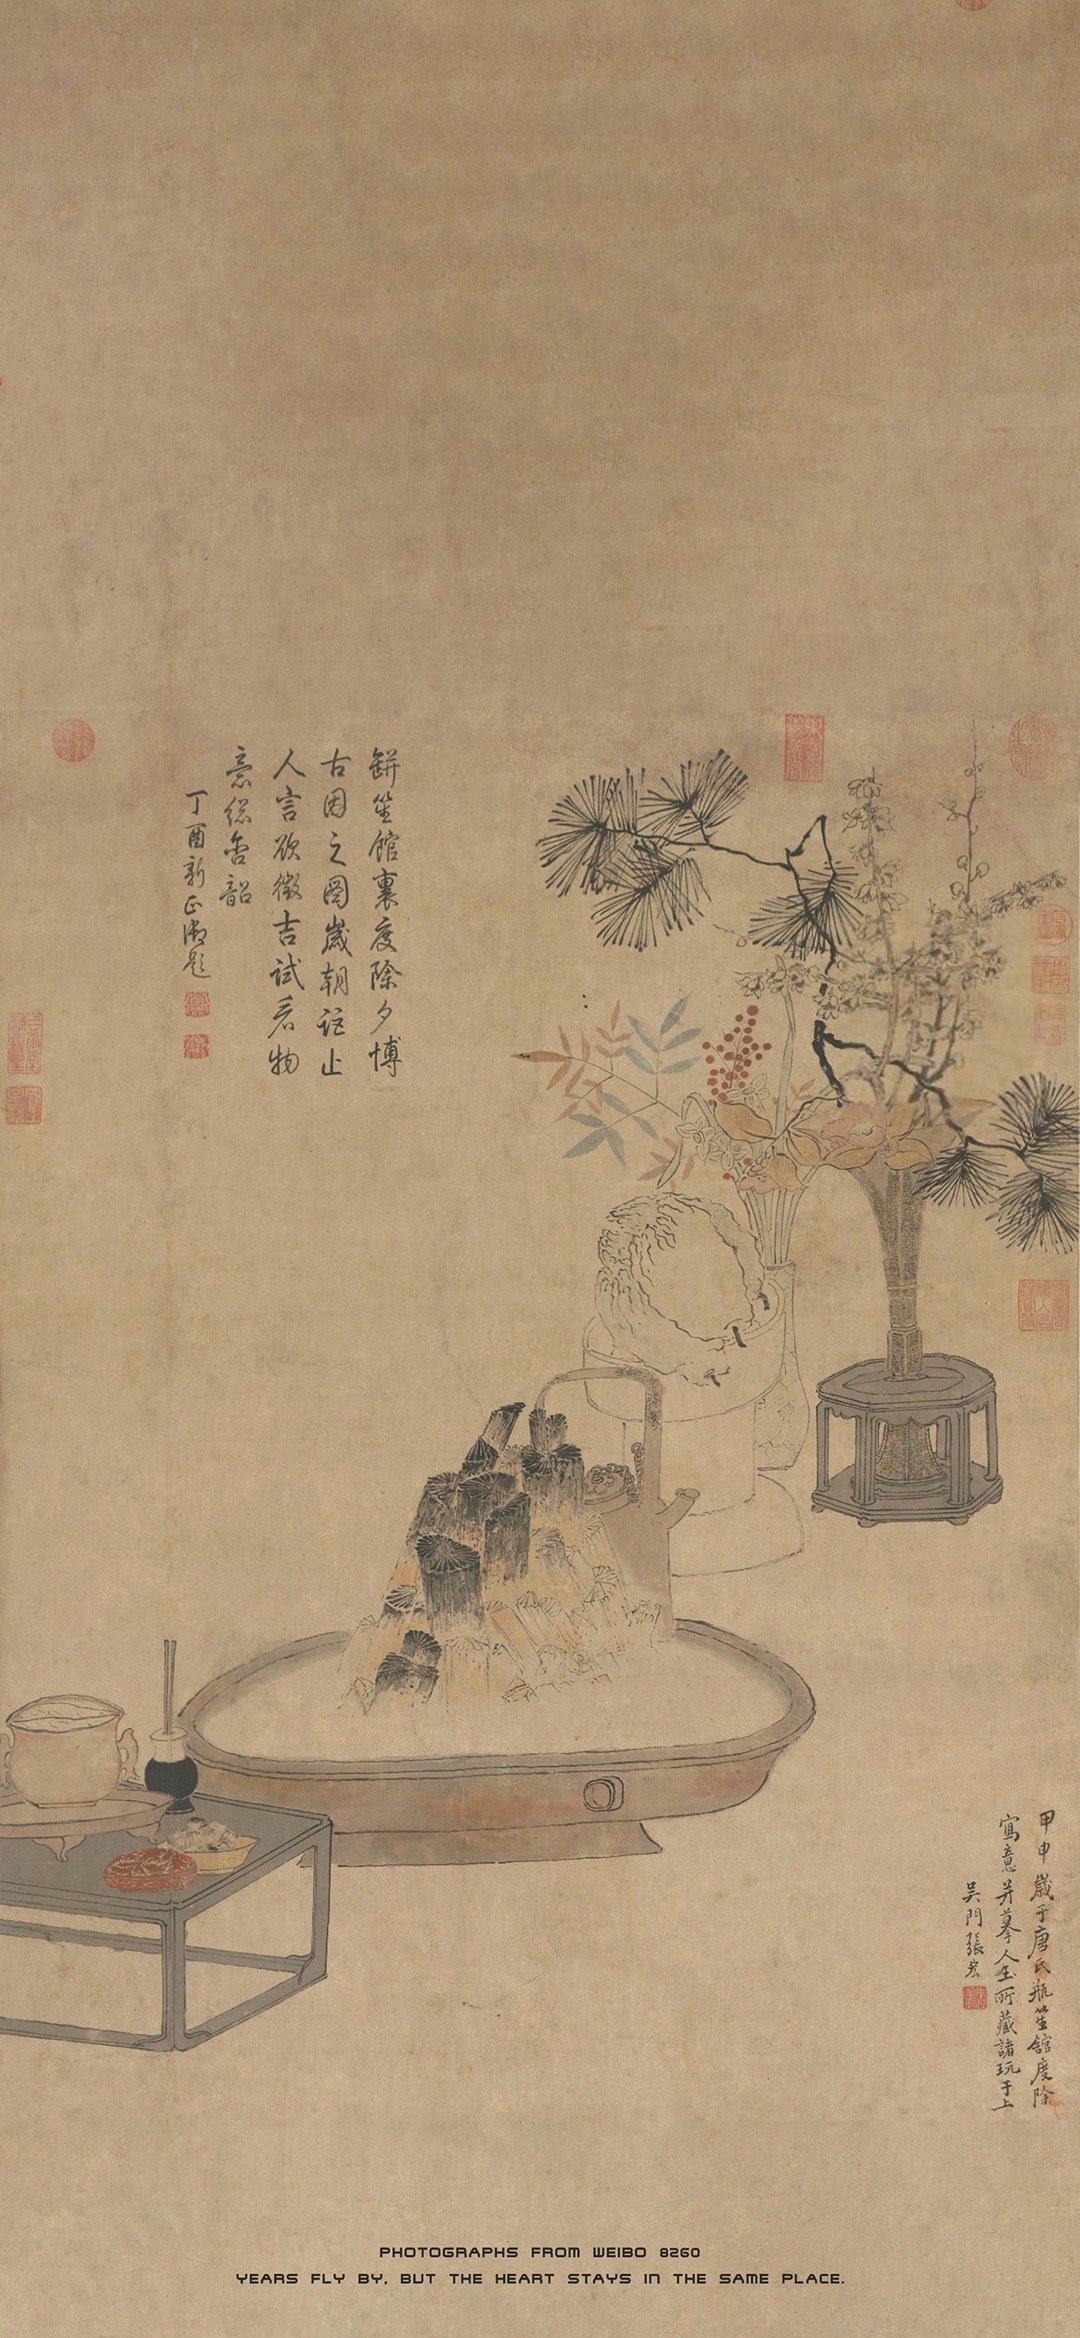 缾笙館裏度除夕博
古因之圖歲朝詎止
人言欲徵吉試看物
意總含韶
丁酉新正御題
甲申歲于唐氏瓶笙館度除
寫意并摹人生所藏諸玩于上
吳門張宏
PHOTOGRAPHS FROM WEIBO 8260
YEARS FLY BY, BUT THE HEART STAYS IN THE SAME PLACE.